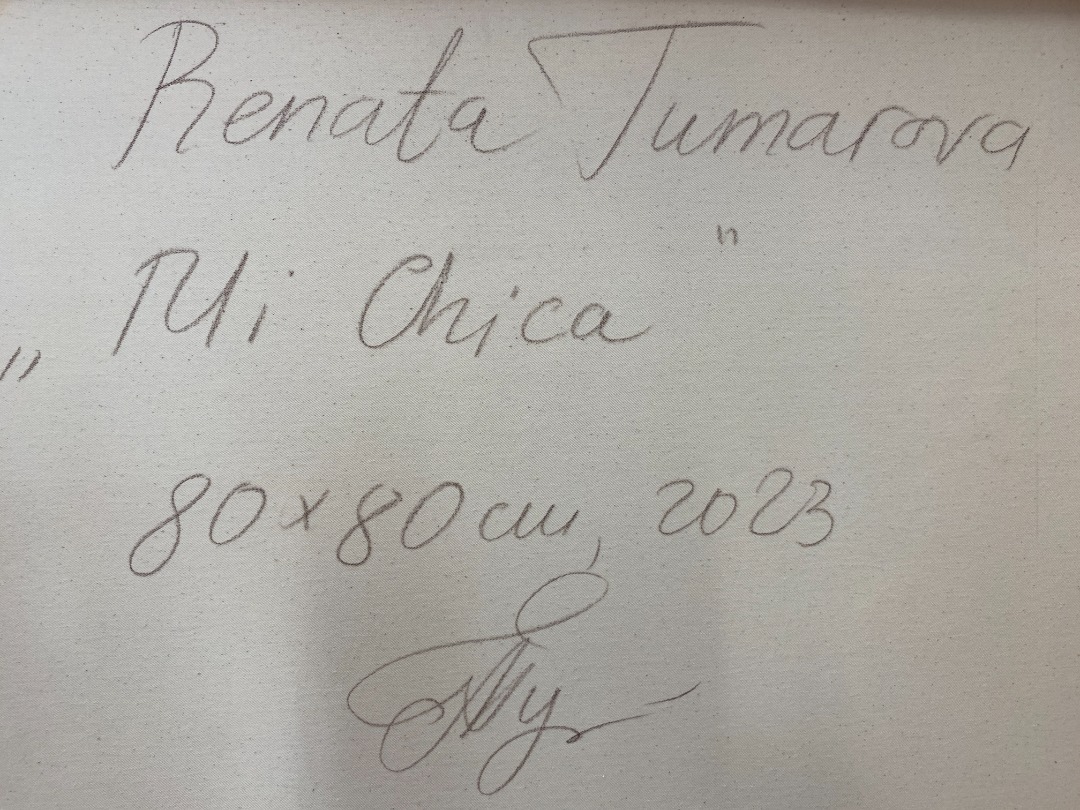 Renata Tumarova
„Mi Chica"
80x80 cm, 2023